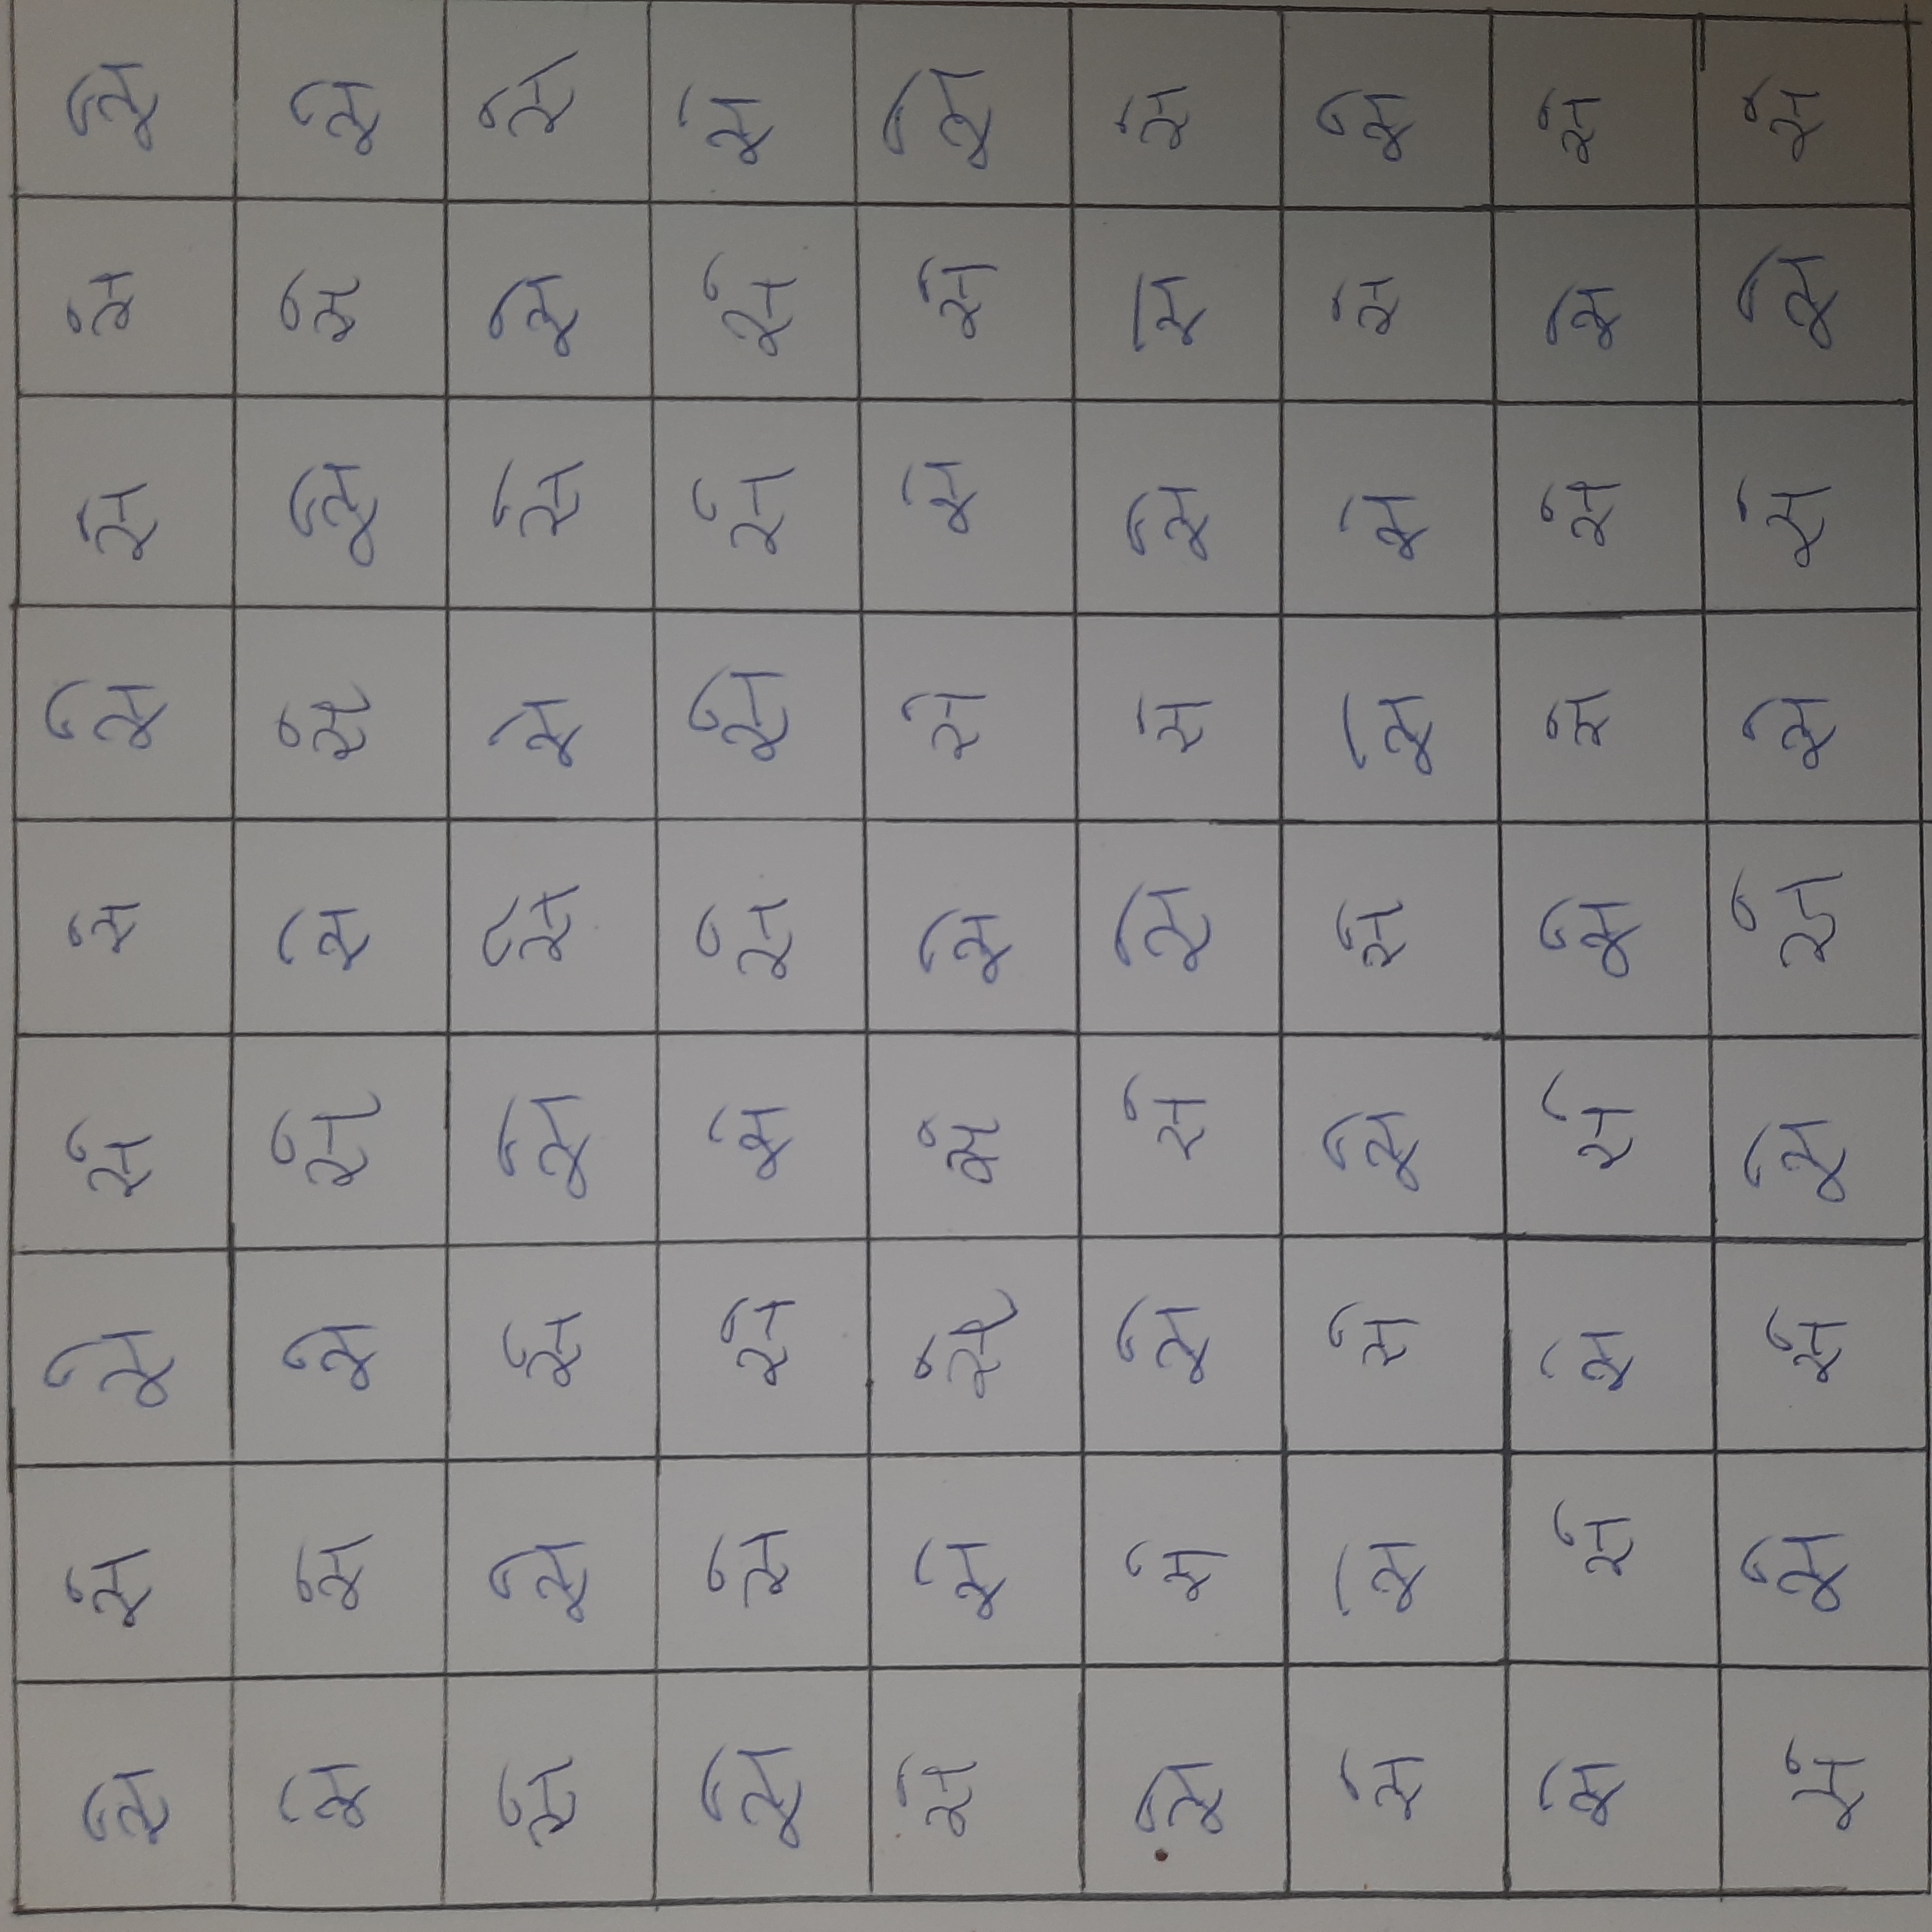 से से से से से से से से से
से से से से से से से से से
से से से से से से से से से
से से से से से से से से से
से से से से से से से से से
से से से से से से से से से
से से से से से से से से से
से से से से से से से से से
से से से से से से से से से